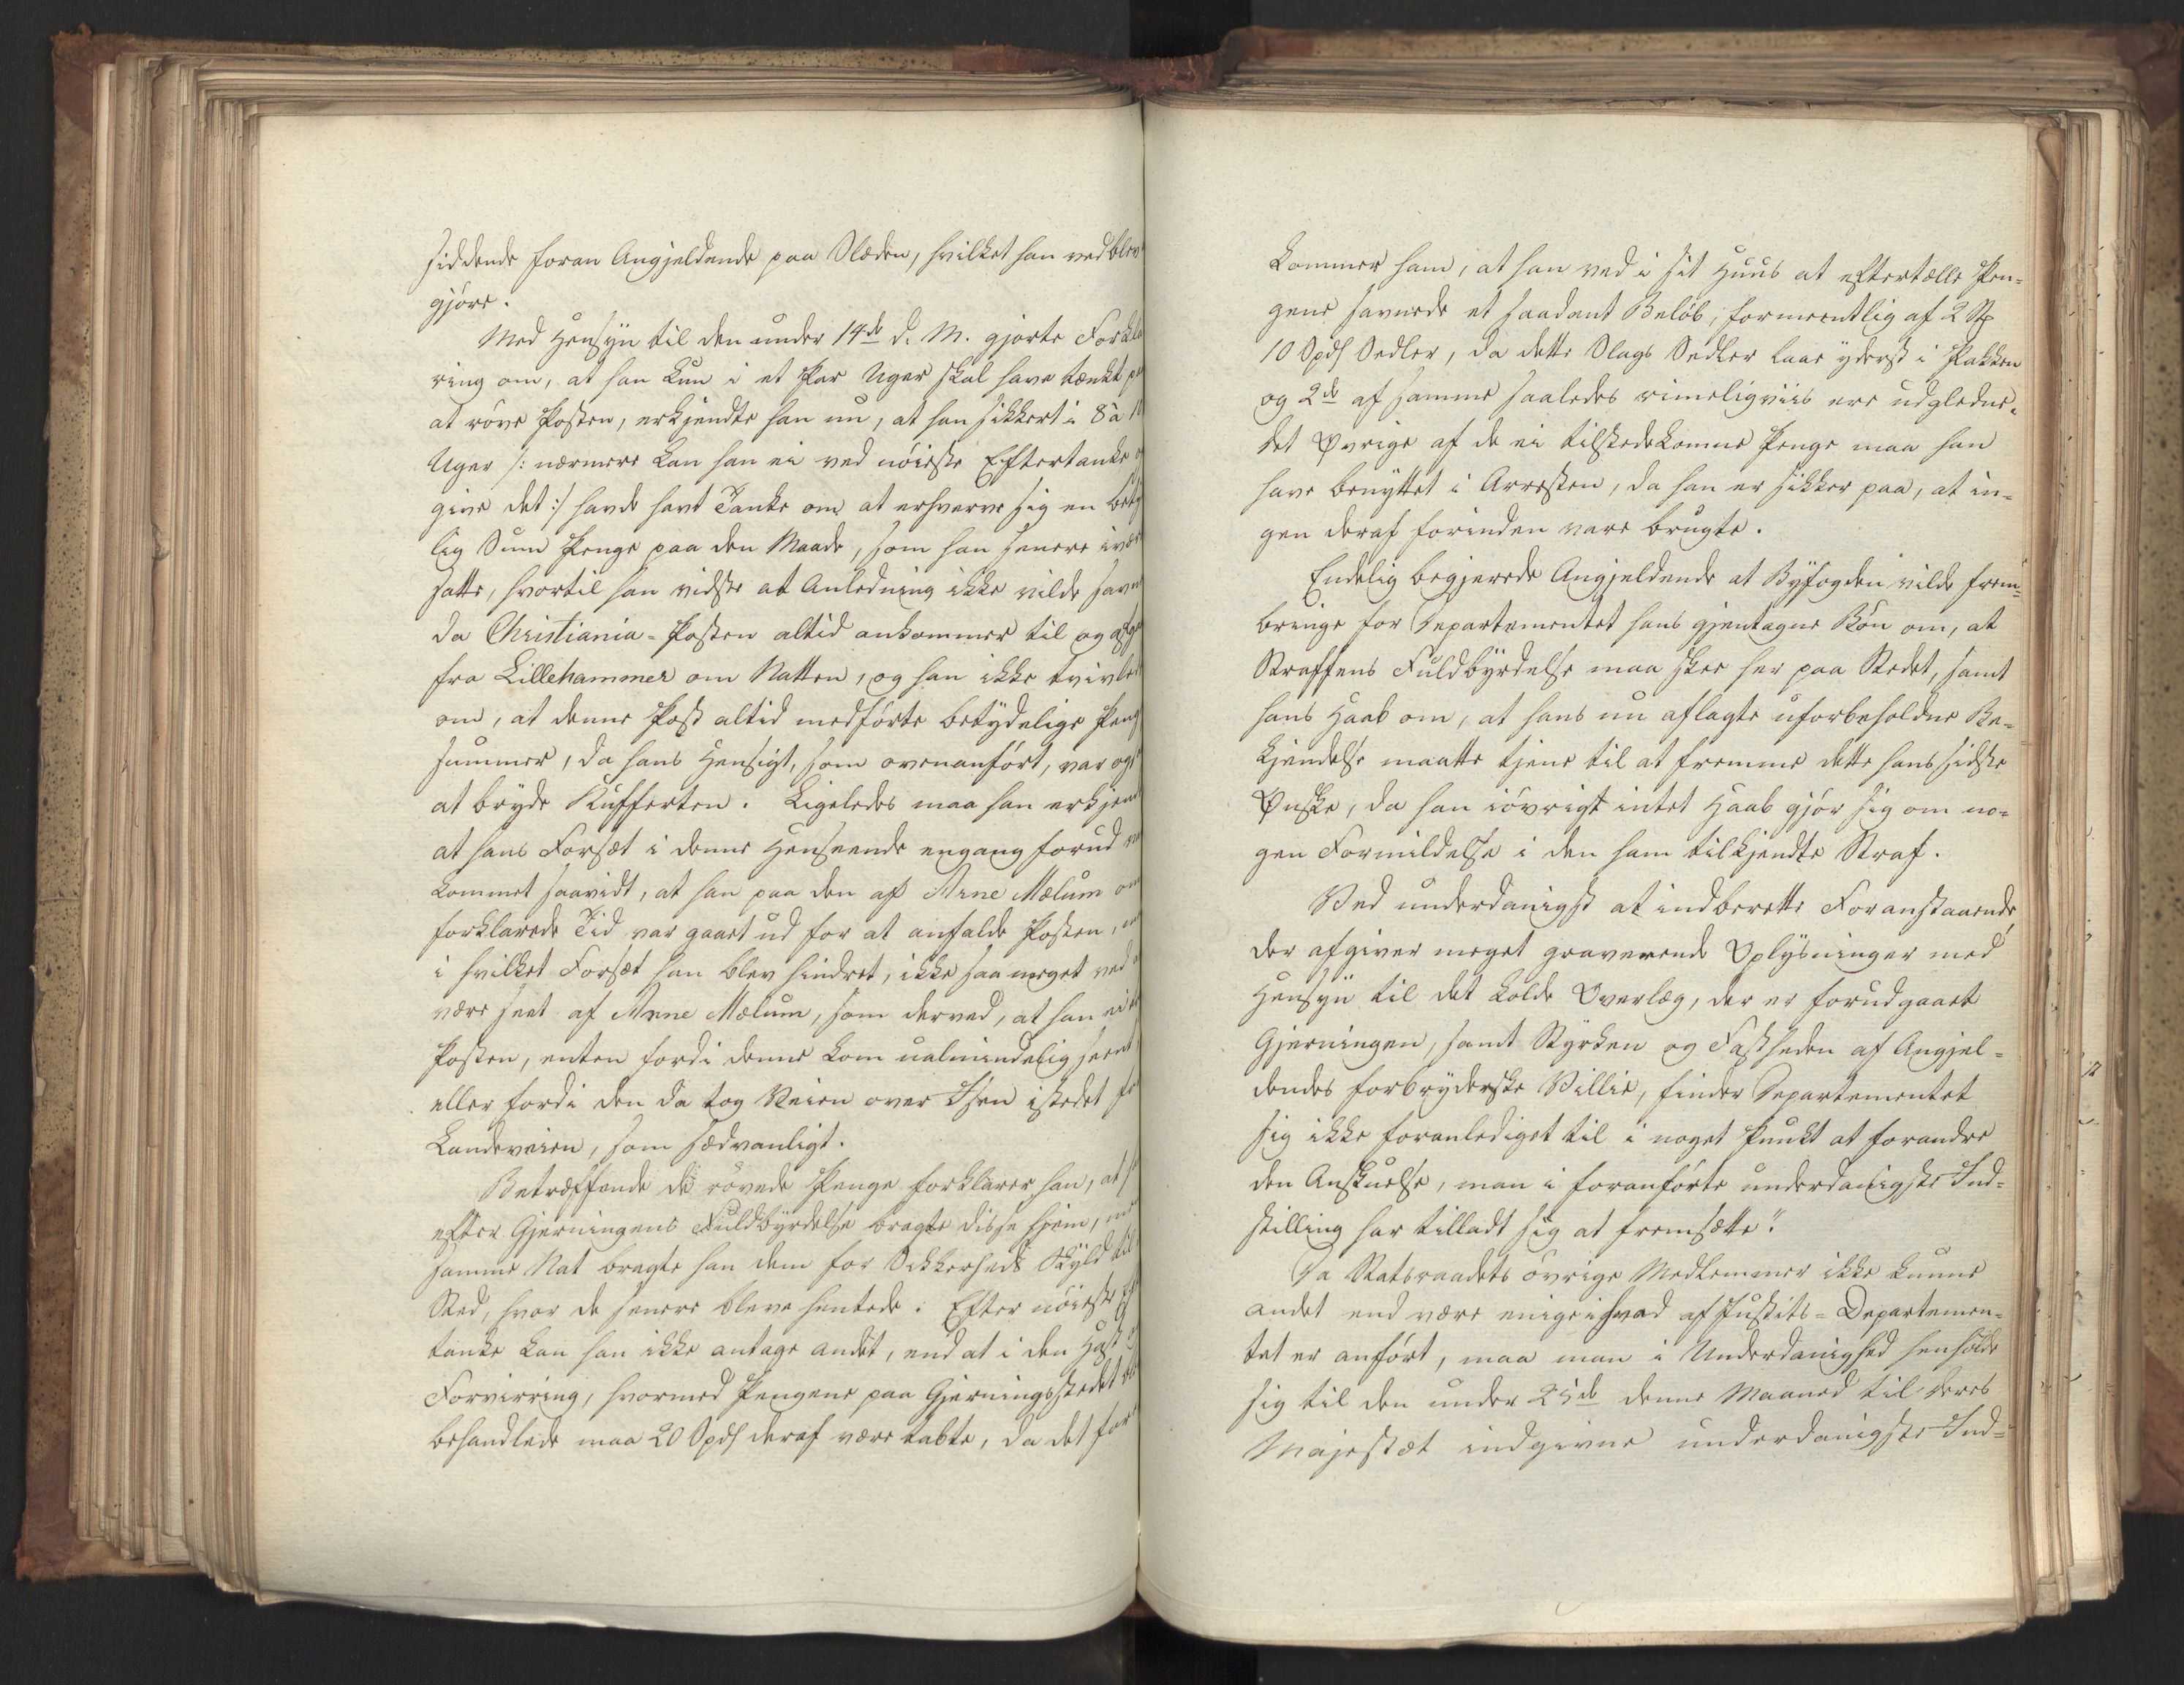 siddende foran Angjeldende paa Slæden, hvilket han vedblev
gjøre.
Med Hensyn til den under 14de d. M. gjorte Forkla
ring om, at han kun i et Par Uger skal have tænkt pa
at røve Posten, erkjendte han nu, at han sikkert i 8 à 10
Uger /: nærmere kan han ei ved nøieste Eftertanke
give det :/ havde havt Tanke om at erhverve sig en bety
lig Sum Penge paa den Maade, som han senere ivær
satte, hvortil han vidste at Anledning ikke vilde savne
da Christiania-Posten altid ankommer til og afga
fra Lillehammer om Natten, og han ikke tvivlede
om, at denne Post altid medførte betydelige Penge
summer, da hans Hensigt, som ovenanført, var ogs
at bryde Kufferten. Ligeledes maa han erkjend
at hans Forsæt i denne Henseende engang forud va
kommet saavidt, at han paa den af Arne Mælum om
forklarede Tid var gaaet ud for at anfalde Posten, m
i hvilket Forsæt han blev hindret, ikke saa meget ved
være seet af Arne Mælum, som derved, at han ei
Posten, enten fordi denne kom ualmindelig seent
eller fordi den da tog Veien over Isen istedet fo
Landeveien, som sædvanligt.
Betræffende de røvede Penge forklarer han, at
efter Gjerningens Fuldbyrdelse bragte disse hjem, m
samme Nat bragte han dem for Sikkerheds Skyld til
Sted, hvor de senere bleve hentede. Efter nøieste Ef
tanke kan han ikke antage andet, end at i den Hast
Forvirring, hvormed Pengene paa Gjerningsstedet
behandlede maa 20 Spd deraf være tabte, da det fore
kommer ham, at han ved i sit Huus at eftertælle Pen-
gene savnede et saadant Beløb, formeentlig af 2 St
10 Spds Sedler, da dette Slags Sedler laae yderst i Pakken
og 2de af samme saaledes rimeligviis ere udgledne.
Det Øvrige af de ei tilstedekomne Penge maa han
have benyttet i Arresten, da han er sikker paa, at in-
gen deraf forinden vare brugte.
Endelig begjerede Angjeldende at Byfogden vilde frem-
bringe for Departementet hans gjentagne Bøn om, at
Straffens Fuldbyrdelse maa skee her paa Stedet, samt
hans Haab om, at hans nu aflagte uforbeholdne Be-
kjendelse maatte tjene til at fremme dette hans sidste
Ønske, da han iøvrigt intet Haab gjør sig om no-
gen Formildelse i den ham tilkjendte Straf.
Ved underdanigst at indberette Foranstaaende
der afgiver meget graverende Oplysninger med
Hensyn til det kolde Overlæg, der er forudgaaet
Gjerningen, samt Styrken og Fastheden af Angjel-
dendes forbryderske Villie, finder Departementet
sig ikke foranlediget til i noget Punkt at forandre
den Anskuelse, man i foranførte underdanigste Ind-
stilling har tilladt sig at fremsætte."
Da Statsraadets øvrige Medlemmer ikke kunne
andet end være enige i hvad af Justits-Departemen-
tet er anført, maa man i Underdanighed henholde
sig til den under 25de denne Maaned til Deres
Majestæt indgivne underdanigste Ind-